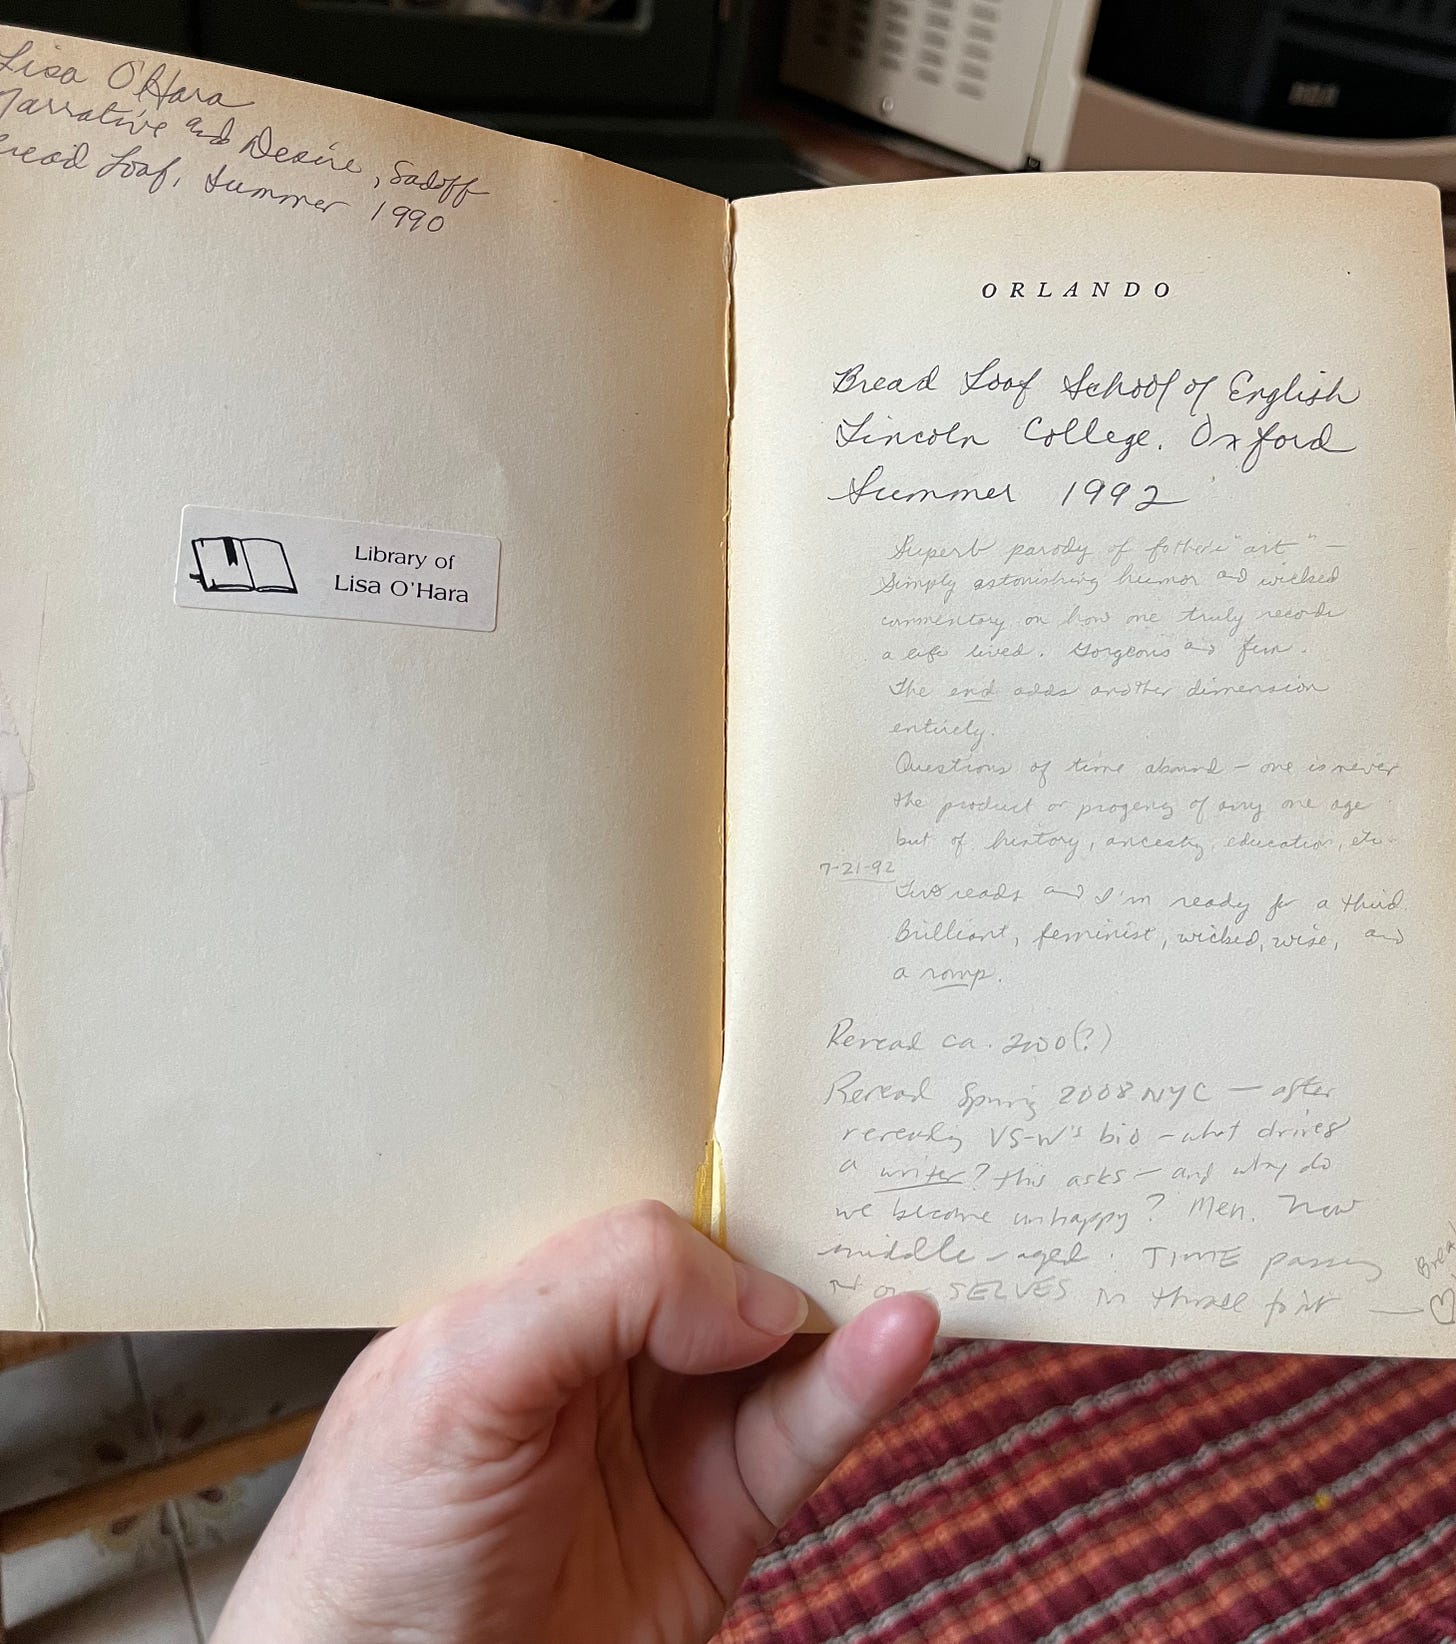 Lisa O'Hara
Narrative and Desire, Sadoff
Bread Loaf, Summer 1990
Library of
Lisa O'Hara
RCA
ORLANDO
Bread Loaf School of English
Lincoln College, Oxford
Summer 1992
Superb parody of father's "art" —
Simply astonishing humor and wicked
commentary on how one truly records
a life lived. Gorgeous and fun.
The end adds another dimension
entirely.
Questions of time abound — one is never
the product or progeny of any one age
but of history, ancestry, education, etc.
7-21-92
Two reads and I'm ready for a third.
Brilliant, feminist, wicked, wise, and
a romp.
Reread ca. 2000(?)
Reread Spring 2008 NYC — after
rereading VS-W's bio — what drives
a writer? this asks — and why do
we become unhappy? Men. Now
middle-aged. TIME passing
SELVES in thrall to it —